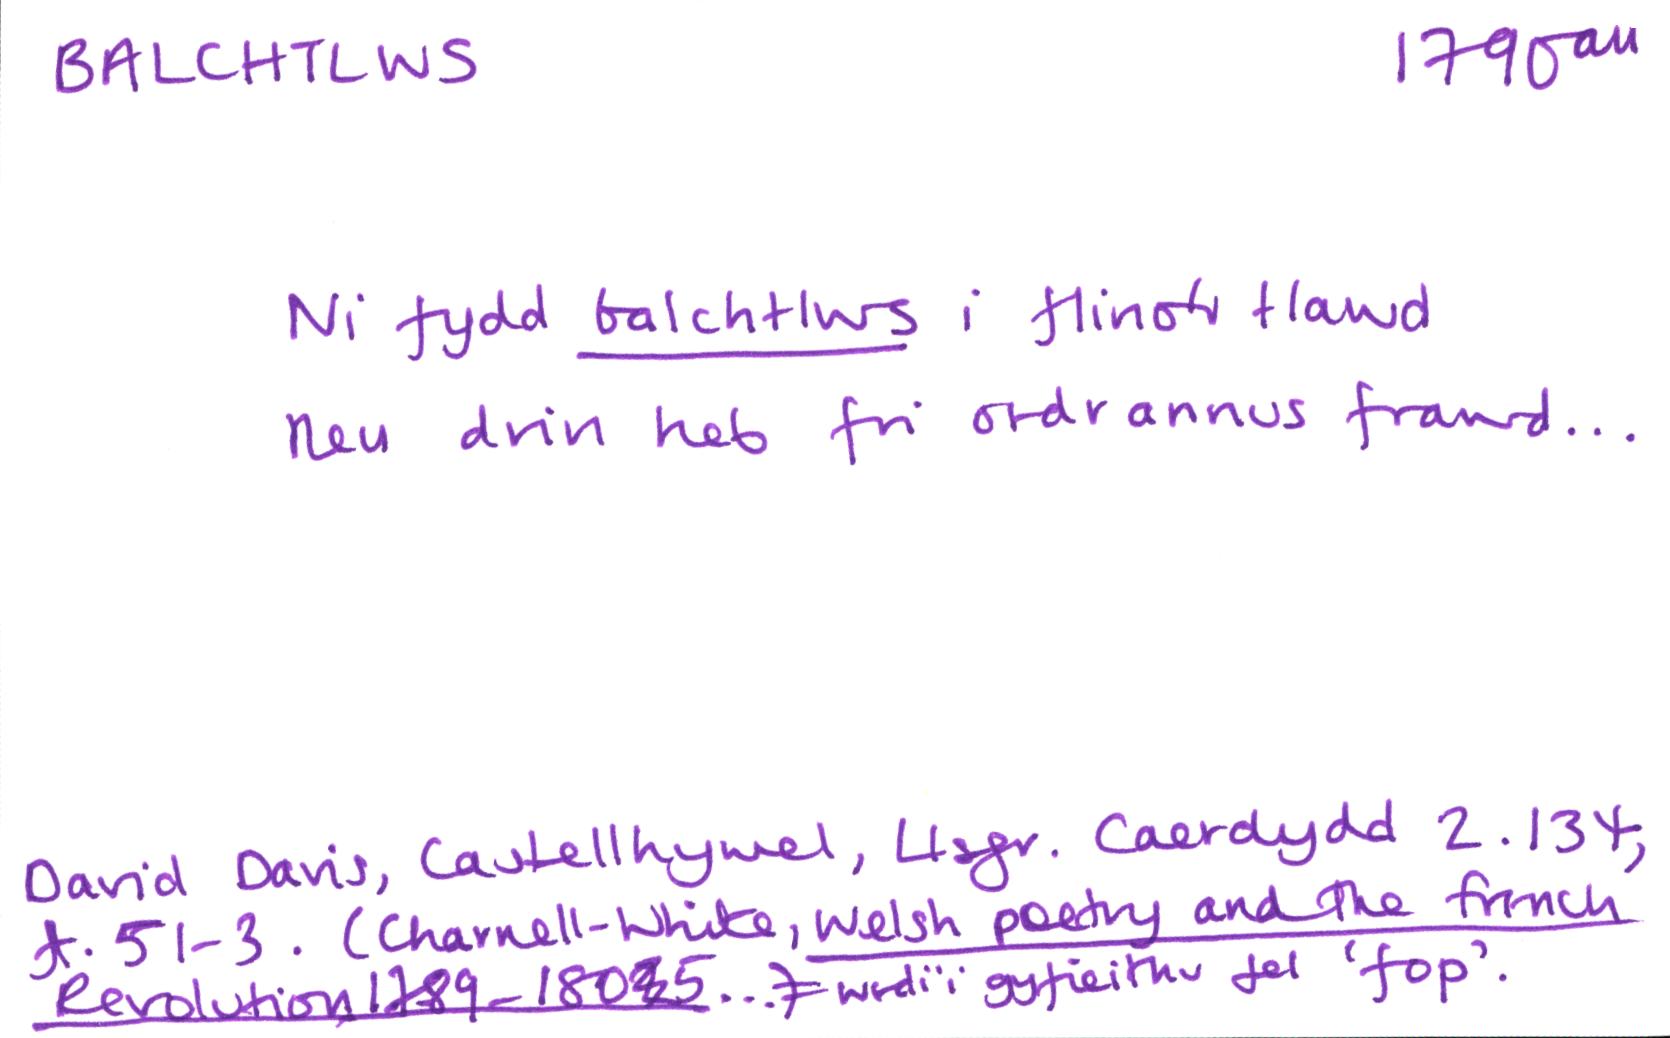 BALCHTLWS 1790au
Ni fydd balchtlws i flinotr tlawd
Neu drin heb fri ordrannus frawd...
David Davis, Castellhywel, Llsgr. Caerdydd 2.134,
t. 51-3. (Charnell-White, Welsh poetry and the french
Revolution 1789-1805...) wedi'i gyfieithu fel 'fop'.